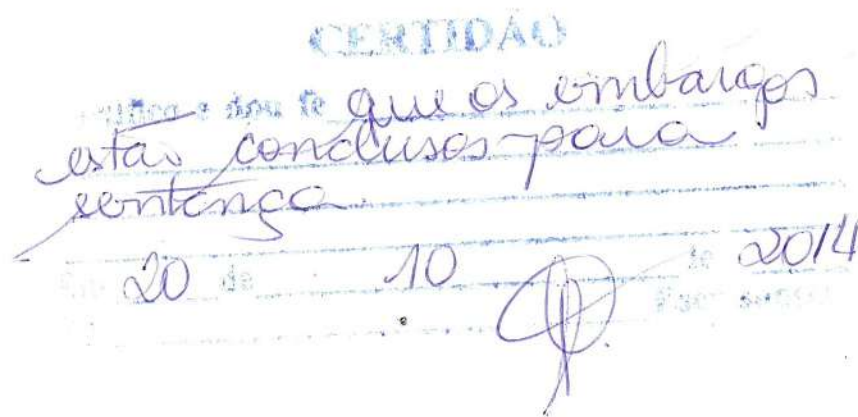 CERTIDÃO
e dou fé que os embargos
estão conclusos para
sentença.
20 de 10 de 2014